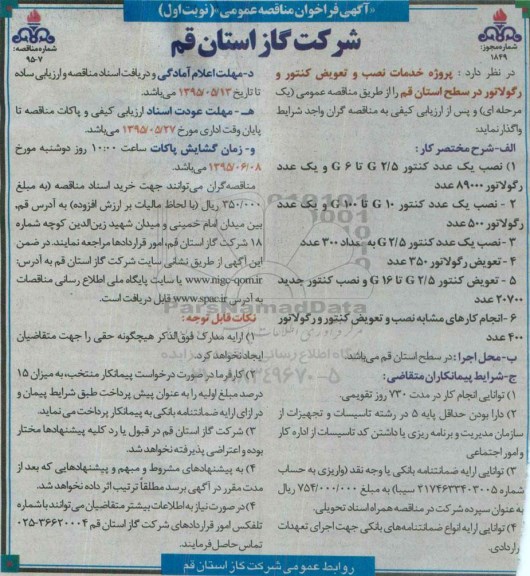 «آگهی فراخوان مناقصه عمومی» (نوبت اول)
شرکت گاز استان قم
شماره مجوز:
۱۸۴۹
شماره مناقصه:
۹۵-۷
در نظر دارد : پروژه خدمات نصب و تعویض کنتور و
رگولاتور در سطح استان قم را از طریق مناقصه عمومی (یک
مرحله ای) و پس از ارزیابی کیفی به مناقصه گران واجد شرایط
واگذار نماید:
الف-شرح مختصر کار :
۱) نصب یک عدد کنتور G ۲/۵ تا G ۶ و یک عدد
رگولاتور ۸۹۰۰۰ عدد
۲ - نصب یک عدد کنتور G ۱۰ تا G ۱۰۰ و یک عدد
رگولاتور ۵۰۰ عدد
۳ - نصب یک عدد کنتور G ۲/۵ به تعداد ۳۰۰ عدد
۴ - تعویض رگولاتور ۳۵۰ عدد
۵ - تعویض کنتور G ۲/۵ تا G ۱۶ و نصب کنتور جدید
۲۰۷۰۰ عدد
۶-انجام کارهای مشابه نصب و تعویض کنتور و رگولاتور
۴۰۰ عدد
ب-محل اجرا: در سطح استان قم می‌باشد.
ج-شرایط پیمانکاران متقاضی:
۱) توانایی انجام کار در مدت ۷۳۰ روز تقویمی.
۲) دارا بودن حداقل پایه ۵ در رشته تاسیسات و تجهیزات از
سازمان مدیریت و برنامه ریزی یا داشتن کد تاسیسات از اداره کار
و امور اجتماعی
۳) توانایی ارایه ضمانتنامه بانکی یا وجه نقد (واریزی به حساب
شماره ۲۱۷۴۶۳۳۴۰۳۰۰۵ سیبا) به مبلغ ۷۵۴/۰۰۰/۰۰۰ ریال
به عنوان سپرده شرکت در مناقصه همراه اسناد تحویلی.
۴) توانایی ارایه انواع ضمانتنامه‌های بانکی جهت اجرای تعهدات
قراردادی.
د-مهلت اعلام آمادگی و دریافت اسناد مناقصه و ارزیابی ساده
تا تاریخ ۱۳۹۵/۰۵/۱۳ می‌باشد.
هـ- مهلت عودت اسناد ارزیابی کیفی و پاکات مناقصه تا
پایان وقت اداری مورخ ۱۳۹۵/۰۵/۲۷ می‌باشد.
و-زمان گشایش پاکات ساعت ۱۰:۰۰ روز دوشنبه مورخ
۱۳۹۵/۰۶/۰۸ می‌باشد.
مناقصه‌گران می‌توانند جهت خرید اسناد مناقصه (به مبلغ
۳۵۰/۰۰۰ ریال (با لحاظ مالیات بر ارزش افزوده) به آدرس قم،
بین میدان امام خمینی و میدان شهید زین‌الدین کوچه شماره
۱۸ شرکت گاز استان قم، امور قراردادها مراجعه نمایند. در ضمن
این آگهی از طریق نشانی سایت شرکت گاز استان قم به آدرس:
www.nigc-qom.ir یا سایت پایگاه ملی اطلاع رسانی مناقصات
به آدرس www.spac.ir قابل دریافت است.
نکات قابل توجه :
۱) ارایه مدارک فوق‌الذکر هیچگونه حقی را جهت متقاضیان
ایجاد نخواهد کرد.
۲) کارفرما در صورت درخواست پیمانکار منتخب، به میزان ۱۵
درصد مبلغ اولیه را به عنوان پیش پرداخت طبق شرایط پیمان و
در ازای ارایه ضمانتنامه بانکی به پیمانکار پرداخت می نماید.
۳) شرکت گاز استان قم در قبول یا رد کلیه پیشنهادها مختار
بوده و اعتراضی پذیرفته نخواهد شد.
۴) به پیشنهادهای مشروط و مبهم و پیشنهادهایی که بعد از
مدت مقرر در آگهی برسد مطلقاً ترتیب اثر داده نخواهد شد.
۵) در صورت نیاز به اطلاعات بیشتر متقاضیان می‌توانند با شماره
تلفکس امور قراردادهای شرکت گاز استان قم ۳۶۶۲۰۰۴-۰۲۵
تماس حاصل فرمایند.
روابط عمومی شرکت گاز استان قم
ParsNamadData